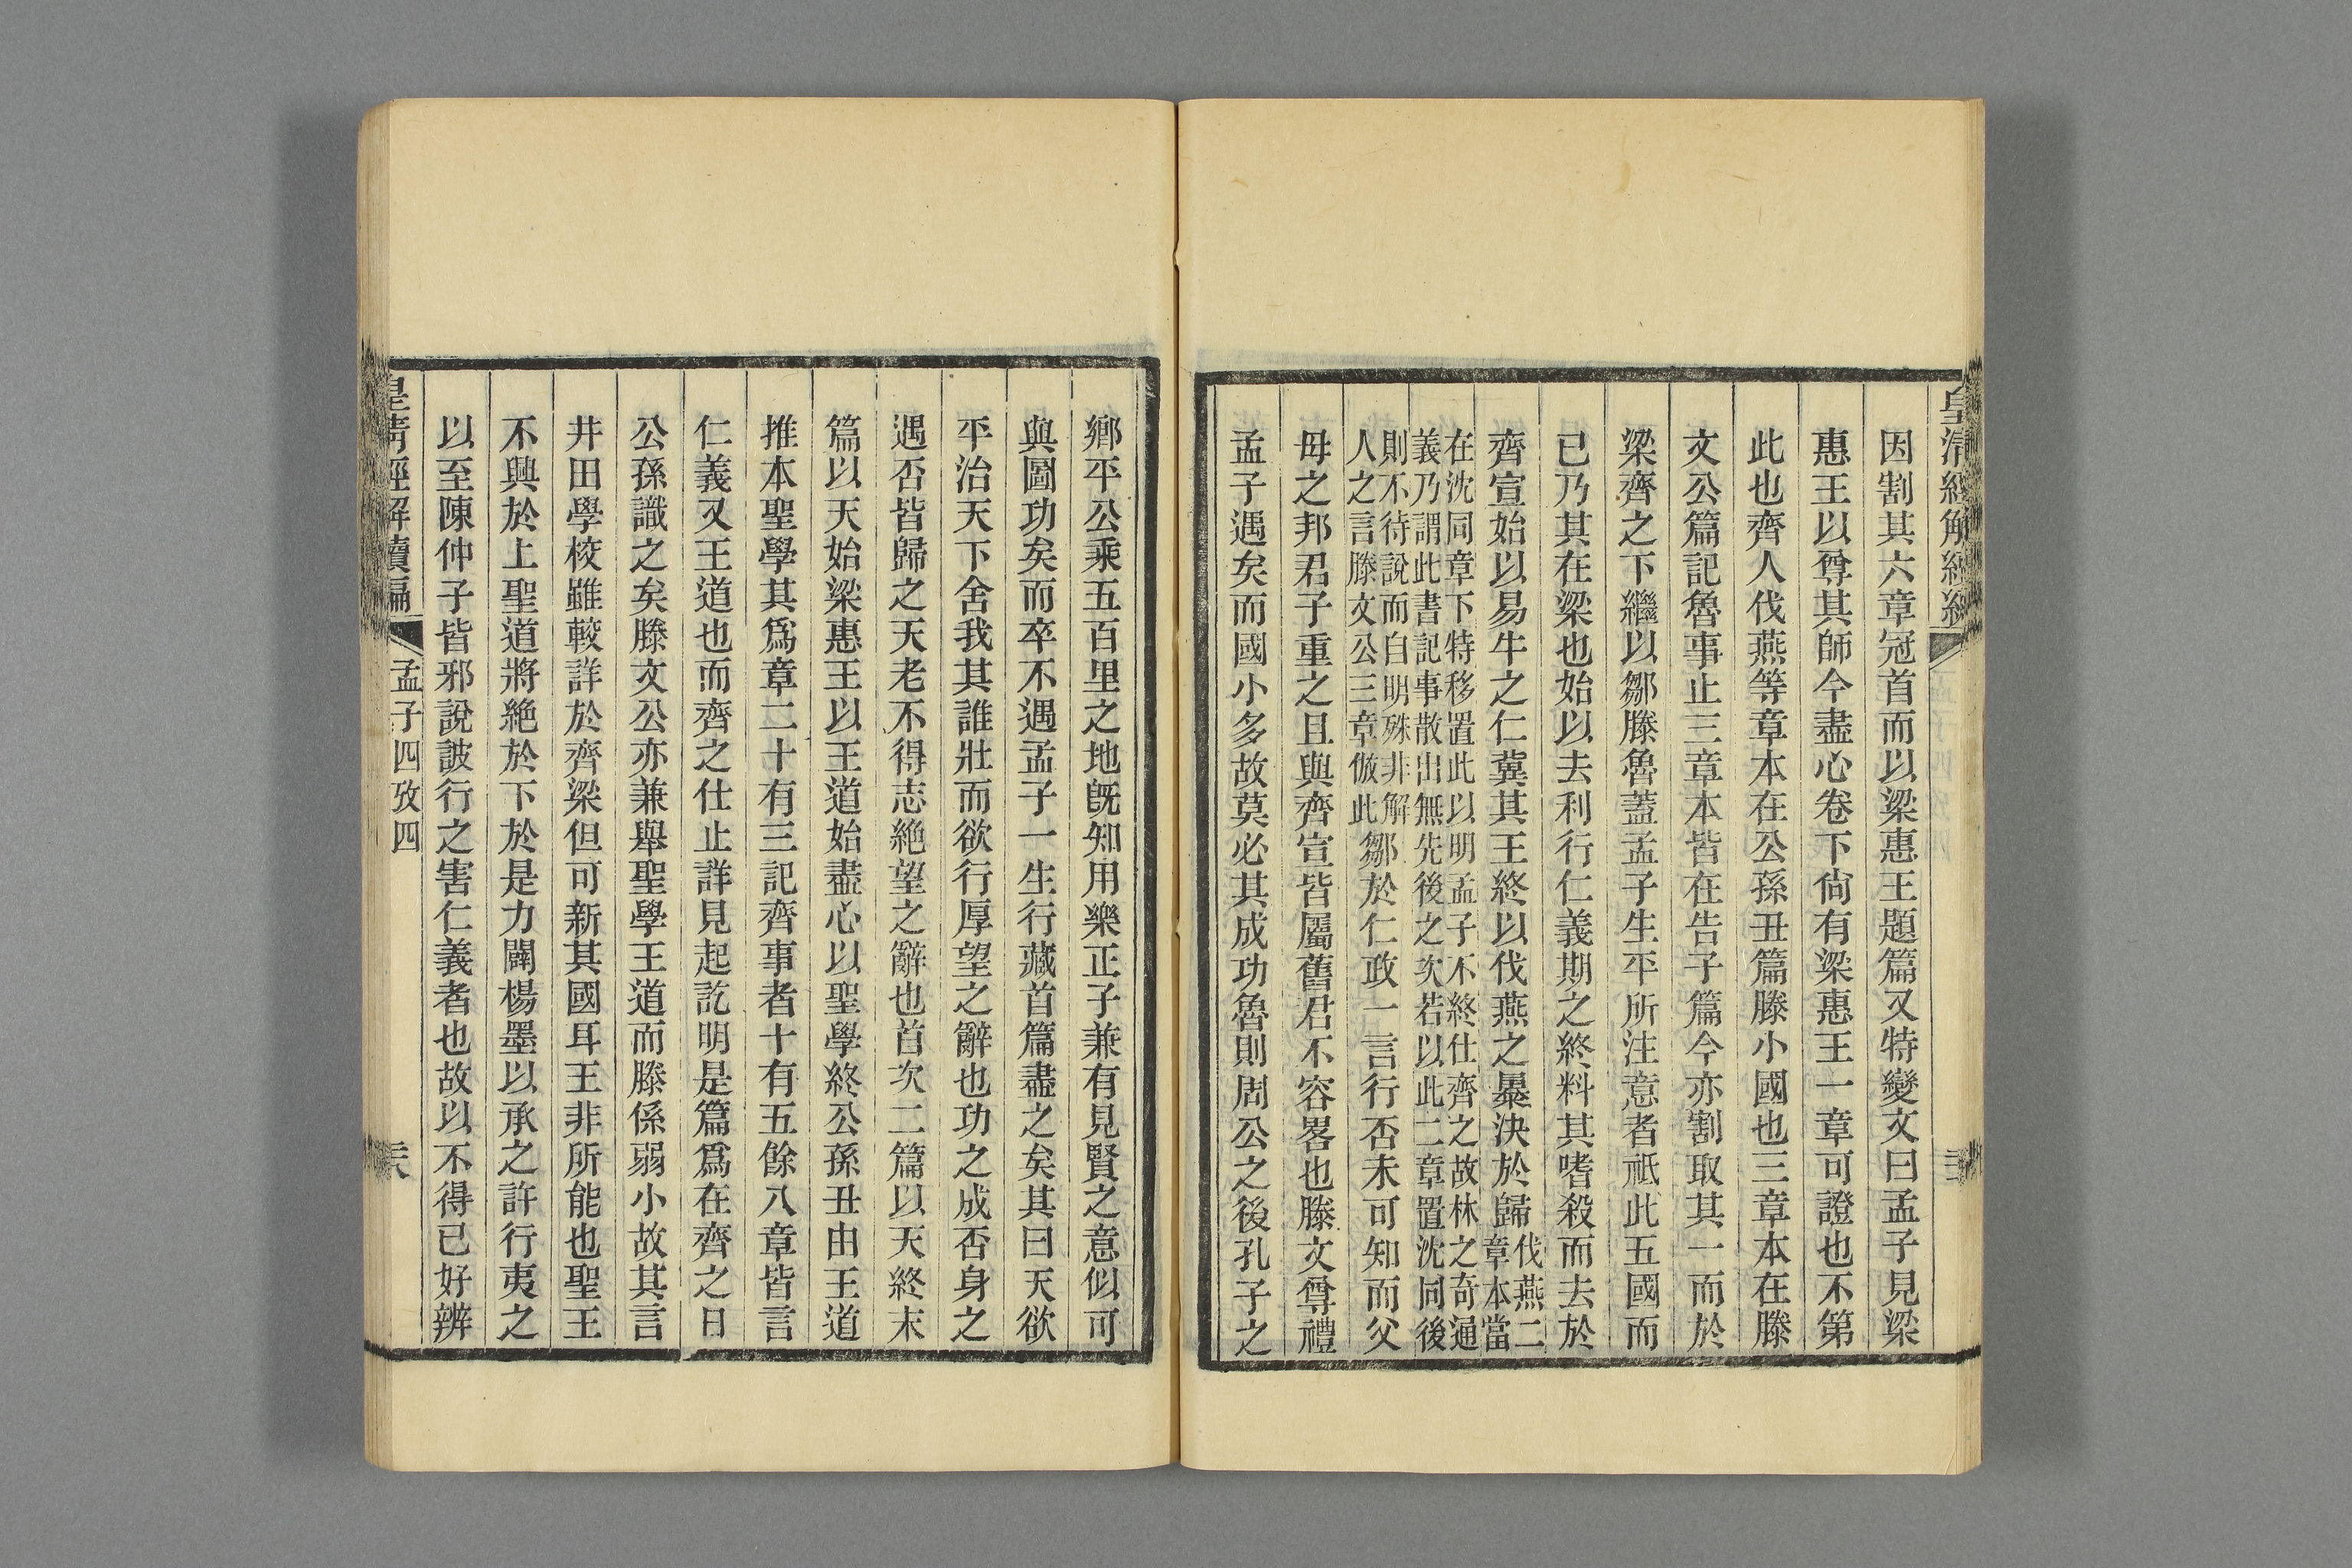 因割其六章冠首而以梁惠王題篇又特變文曰孟子見梁
惠王以尊其師今盡心卷下尙有梁惠王一章可證也不第
此也齊人伐燕等章本在公孫丑篇滕小國也三章本在滕
文公篇記魯事止三章本皆在告子篇今亦割取其一而於
梁齊之下繼以鄒滕魯蓋孟子生平所注意者祗此五國而
已乃其在梁也始以去利行仁義期之終料其嗜殺而去於
齊宣始以易牛之仁冀其王終以伐燕之暴決於歸伐燕二章本當
在沈同章下特移置此以明孟子不終仕齊之故林之奇通
義乃謂此書記事散出無先後之次若以此二章置沈同後
則不待說而白明殊非解
人之言滕文公三章倣此
鄒於仁政一言行否未可知而父
母之邦君子重之且與齊宣皆屬舊君不容畧也滕文尊禮
孟子遇矣而國小多故莫必其成功魯則周公之後孔子之
鄉平公乘五百里之地旣知用樂正子兼有見賢之意似可
與圖功矣而卒不遇孟子一生行藏首篇盡之矣其曰天欲
平治天下舍我其誰壯而欲行厚望之辭也功之成否身之
遇否皆歸之天老不得志絶望之辭也首次二篇以天終末
篇以天始梁惠王以王道始盡心以聖學終公孫丑由王道
推本聖學其爲章二十有三記齊事者十有五餘八章皆言
仁義又王道也而齊之仕止詳見起訖明是篇爲在齊之日
公孫識之矣滕文公亦兼舉聖學王道而滕係弱小故其言
井田學校雖較詳於齊梁但可新其國耳王非所能也聖王
不興於上聖道將絶於下於是力闢楊墨以承之許行夷之
以至陳仲子皆邪說詖行之害仁義者也故以不得已好辨
皇清經解續編
孟子四攷四